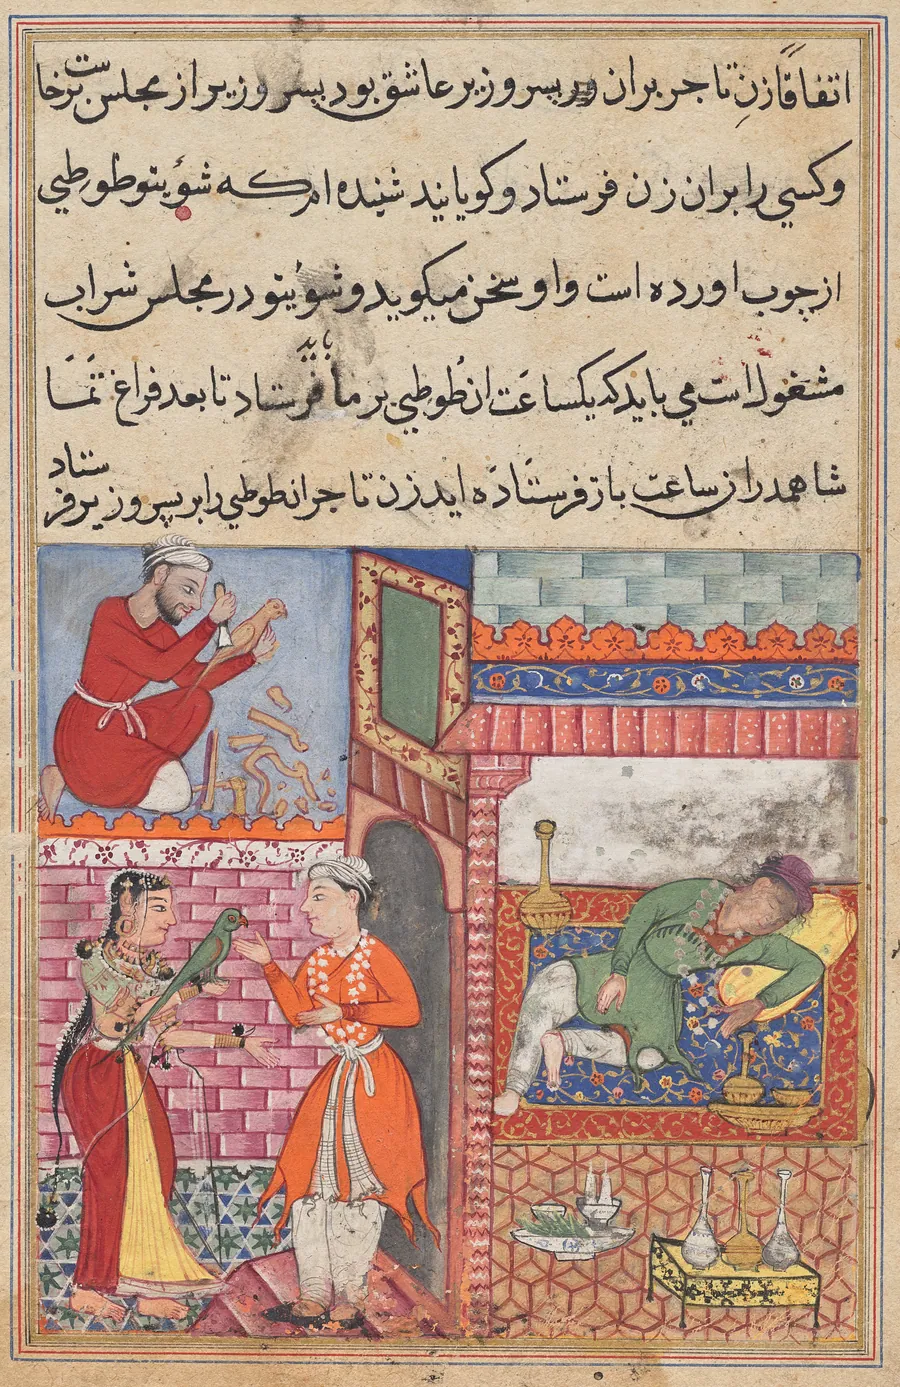 اتفاقا زن تاجر بران پسر وزیر عاشق بود پسر وزیر از مجلس برخاست
وکسی را بران زن فرستاد و کویانید شنیده ام که شوئ تو طوطی
از چوب اورده است و او سخن میکوید و شوئ تو در مجلس شراب
مشغول است می باید که یکساعت ان طوطی بر ما باید فرستاد تا بعد فراغ تماشا
شا همدران ساعت باز فرستاده اید زن تاجر ان طوطی را بر پسر وزیر فرستاد